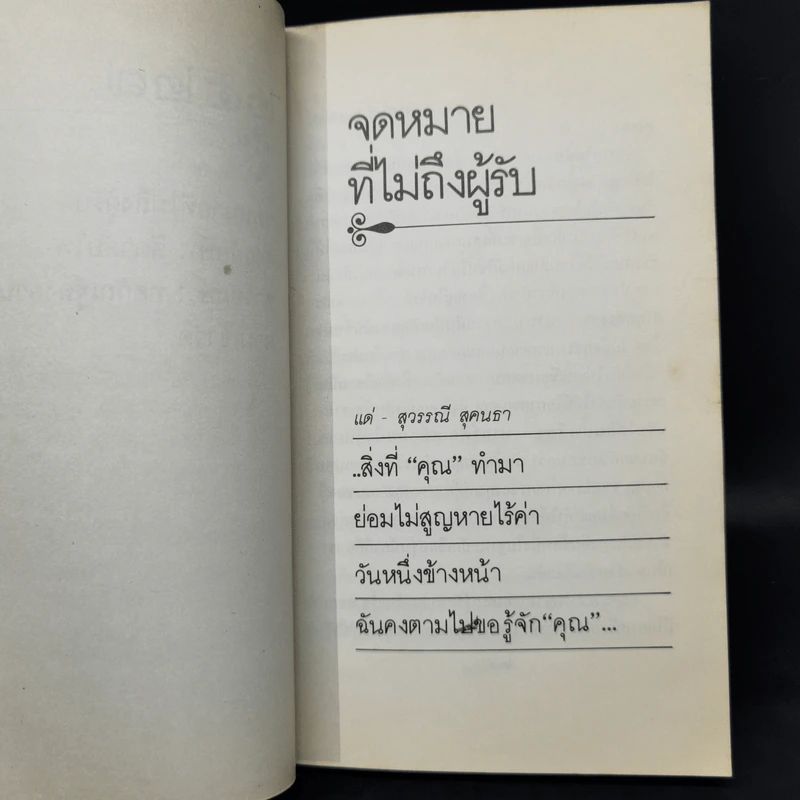 จดหมาย
ที่ไม่ถึงผู้รับ
แด่ - สุวรรณี สุคนธา
..สิ่งที่ “คุณ” ทำมา
ย่อมไม่สูญหายไร้ค่า
วันหนึ่งข้างหน้า
ฉันคงตามไปขอรู้จัก“คุณ”...